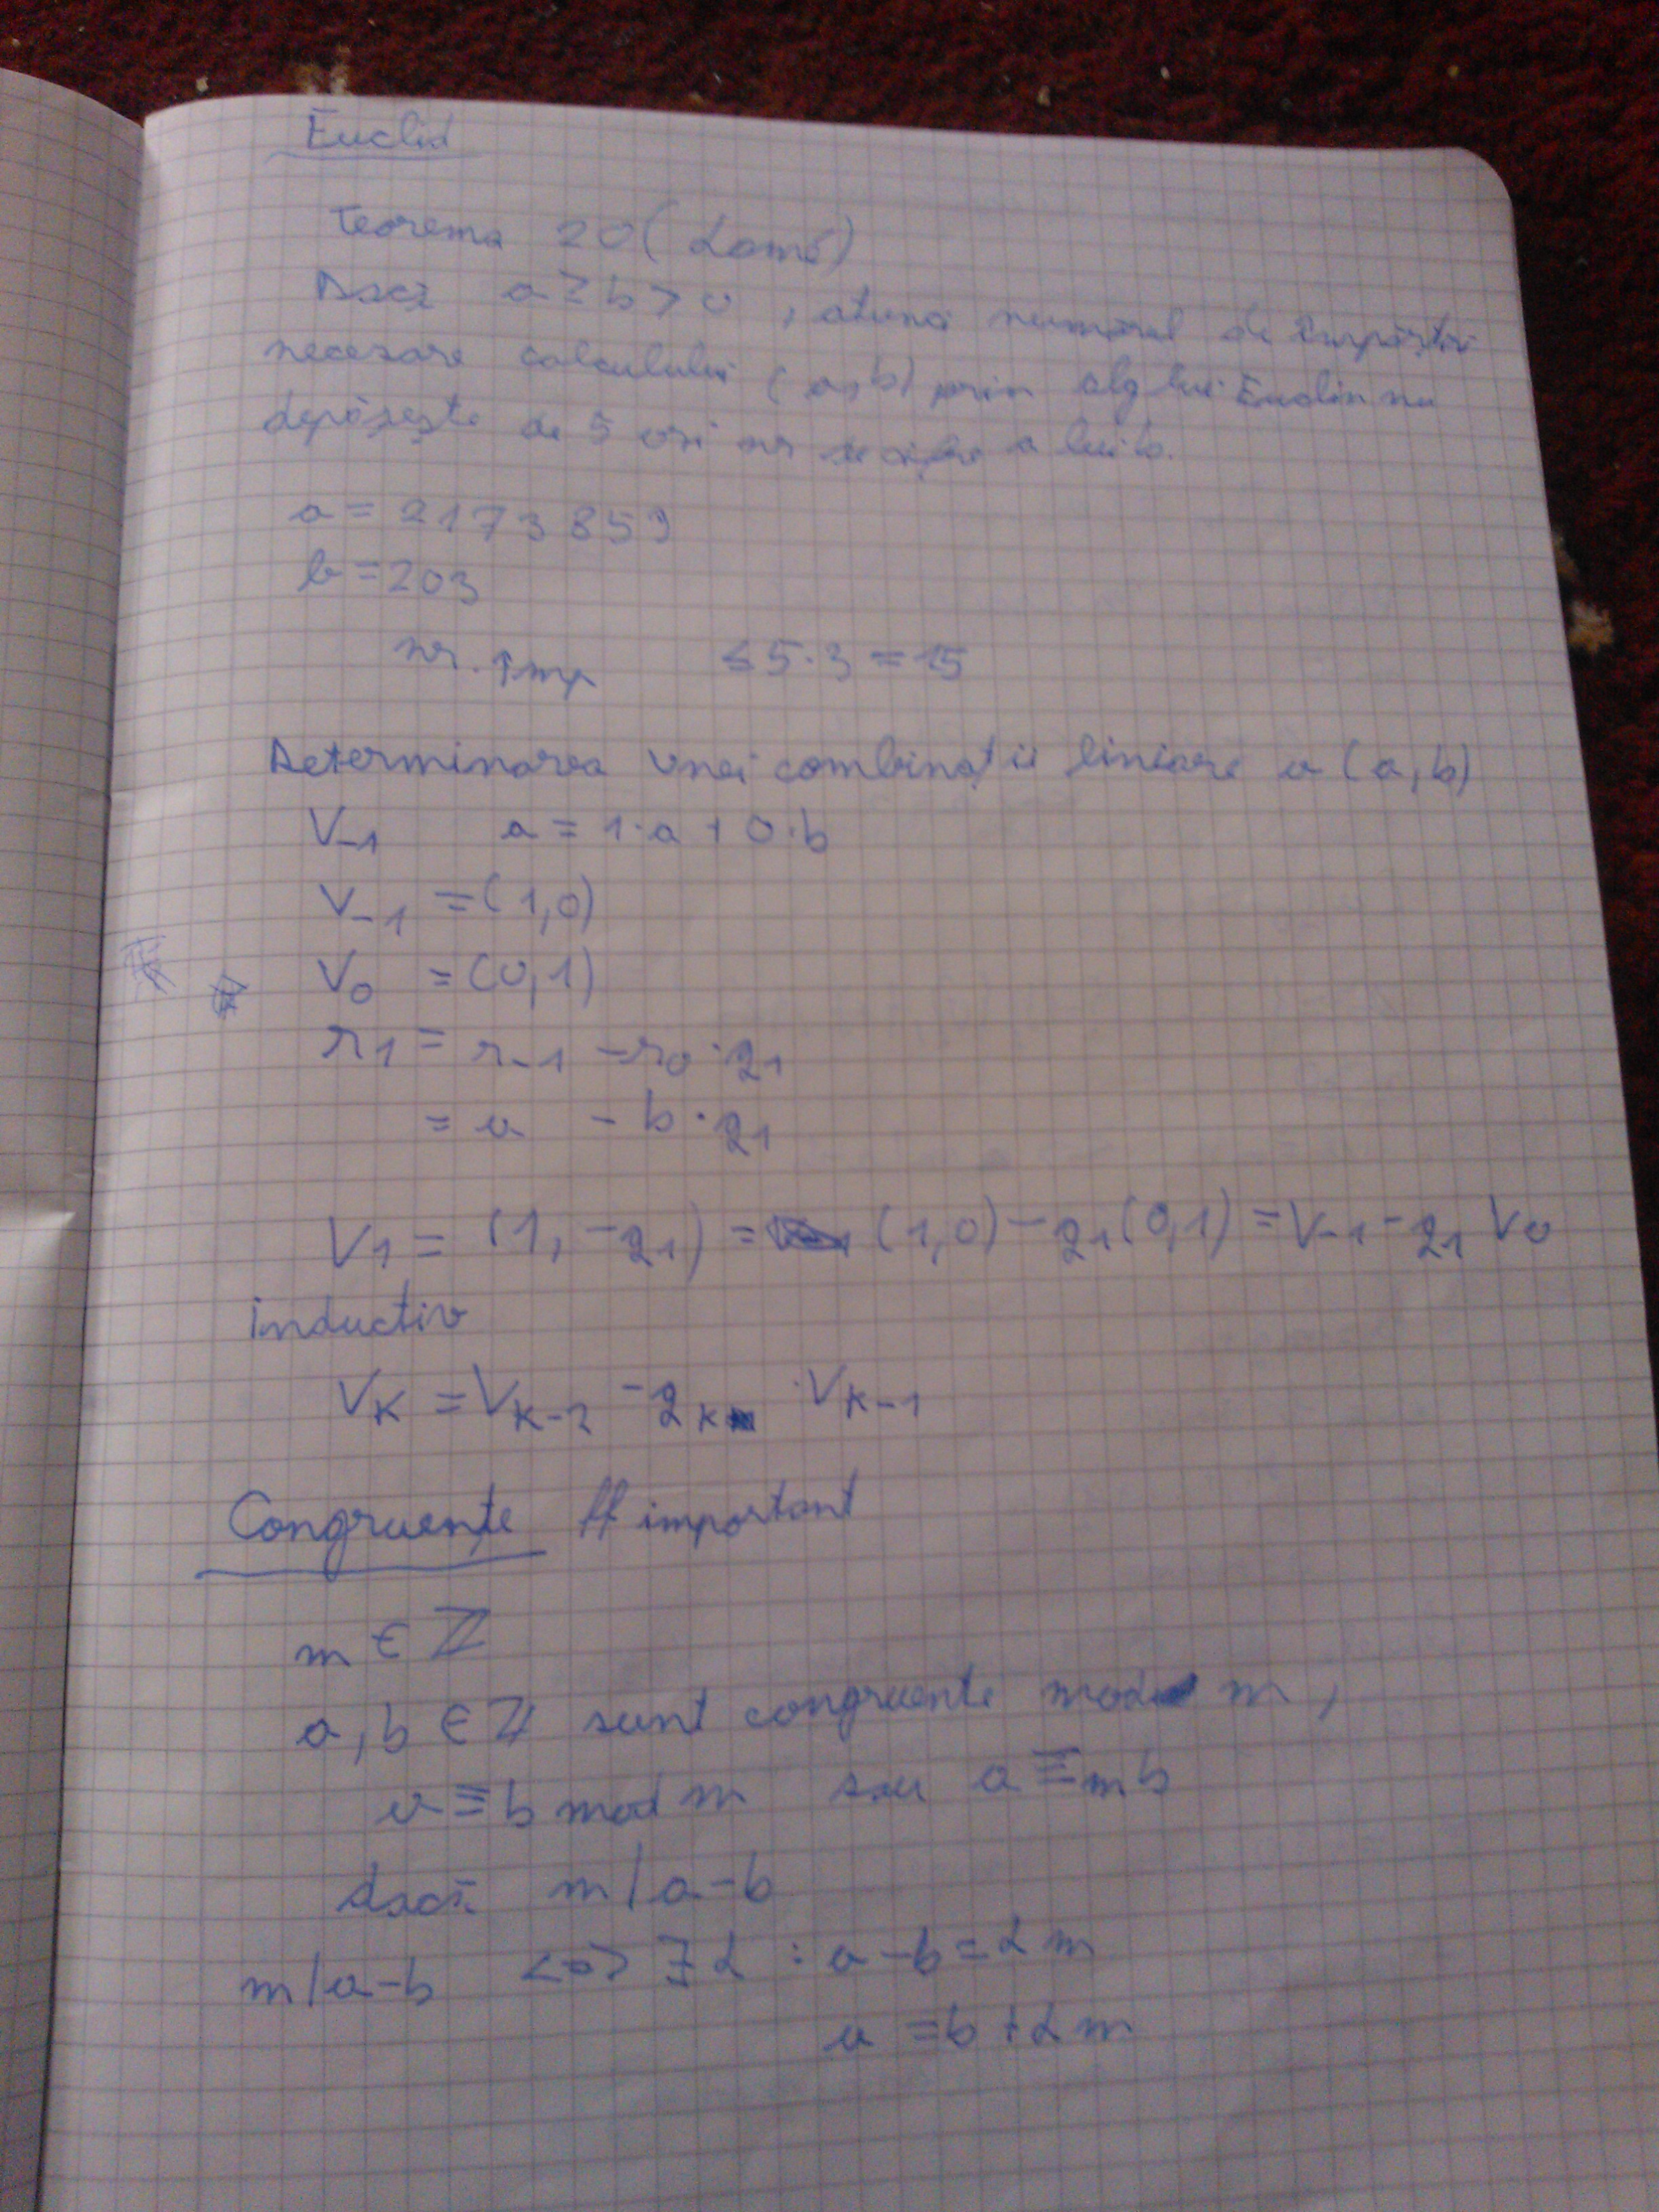 Euclid
Teorema 20 (Lamé)
Dacă a ≥ b > 0, atunci numărul de împărțiri
necesare calculului (a,b) prin alg lui Euclin nu
depășește de 5 ori nr de cifre a lui b.
a = 2173859
b = 203
nr. împ ≤ 5·3 = 15
Determinarea unei combinații liniare a (a,b)
V₋₁ a = 1·a + 0·b
V₋₁ = (1,0)
V₀ = (0,1)
r₁ = r₋₁ - r₀·q₁
= a - b·q₁
V₁ = (1, -q₁) = (1,0) - q₁(0,1) = V₋₁ - q₁ V₀
inductiv
Vₖ = Vₖ₋₂ - qₖ · Vₖ₋₁
Congruențe ff important
m ∈ ℤ
a, b ∈ ℤ sunt congruente mod m,
a ≡ b mod m sau a ≡m b
dacă m | a-b
m | a-b <=> ∃ α : a-b = α m
a = b + α m